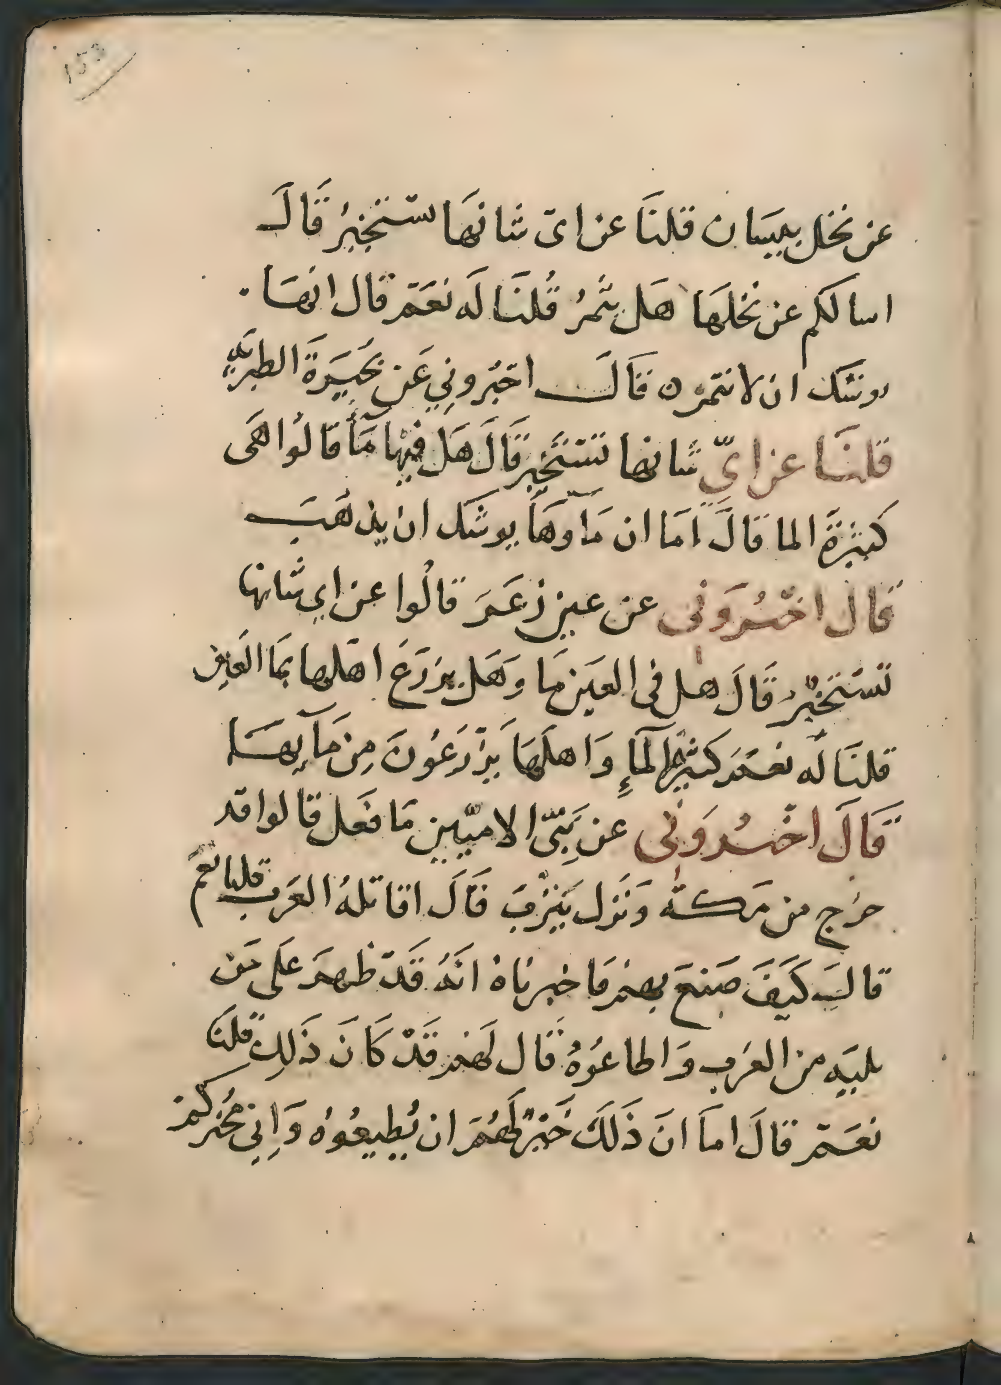 153
عن نخل بيسان قلنا عن اىّ شانها تستخبر قال
اسالكم عن نخلها هل يثمر قلنا له نعم قال انها
يوشك ان لا تثمره قال اخبروني عن بحيرة الطبرية
قلنا عن ايّ شانها تستخبر قال هل فيها مآ قالوا هى
كثيرة الما قال اما ان مآوها يوشك ان يذهب
قال اخبرونى عن عين زعر قالوا عن اي شانها
تستخبر قال هل فى العين ما وهل يزرع اهلها بما العين
قلنا له نعم كثيرة المآء واهلها يزرعون من مآيها
قال اخبرونى عن نبىّ الاميّين ما فعل قالوا قد
خرج من مكة ونزل يثرب قال اقاتله العرب قلنا نعم
قال كيف صنع بهم فاخبرناه انه قد ظهر على من
يليه من العرب واطاعوه قال لهم قد كان ذلك قلنا
نعم قال اما ان ذلك خير لهم ان يطيعوه واني مخبركم